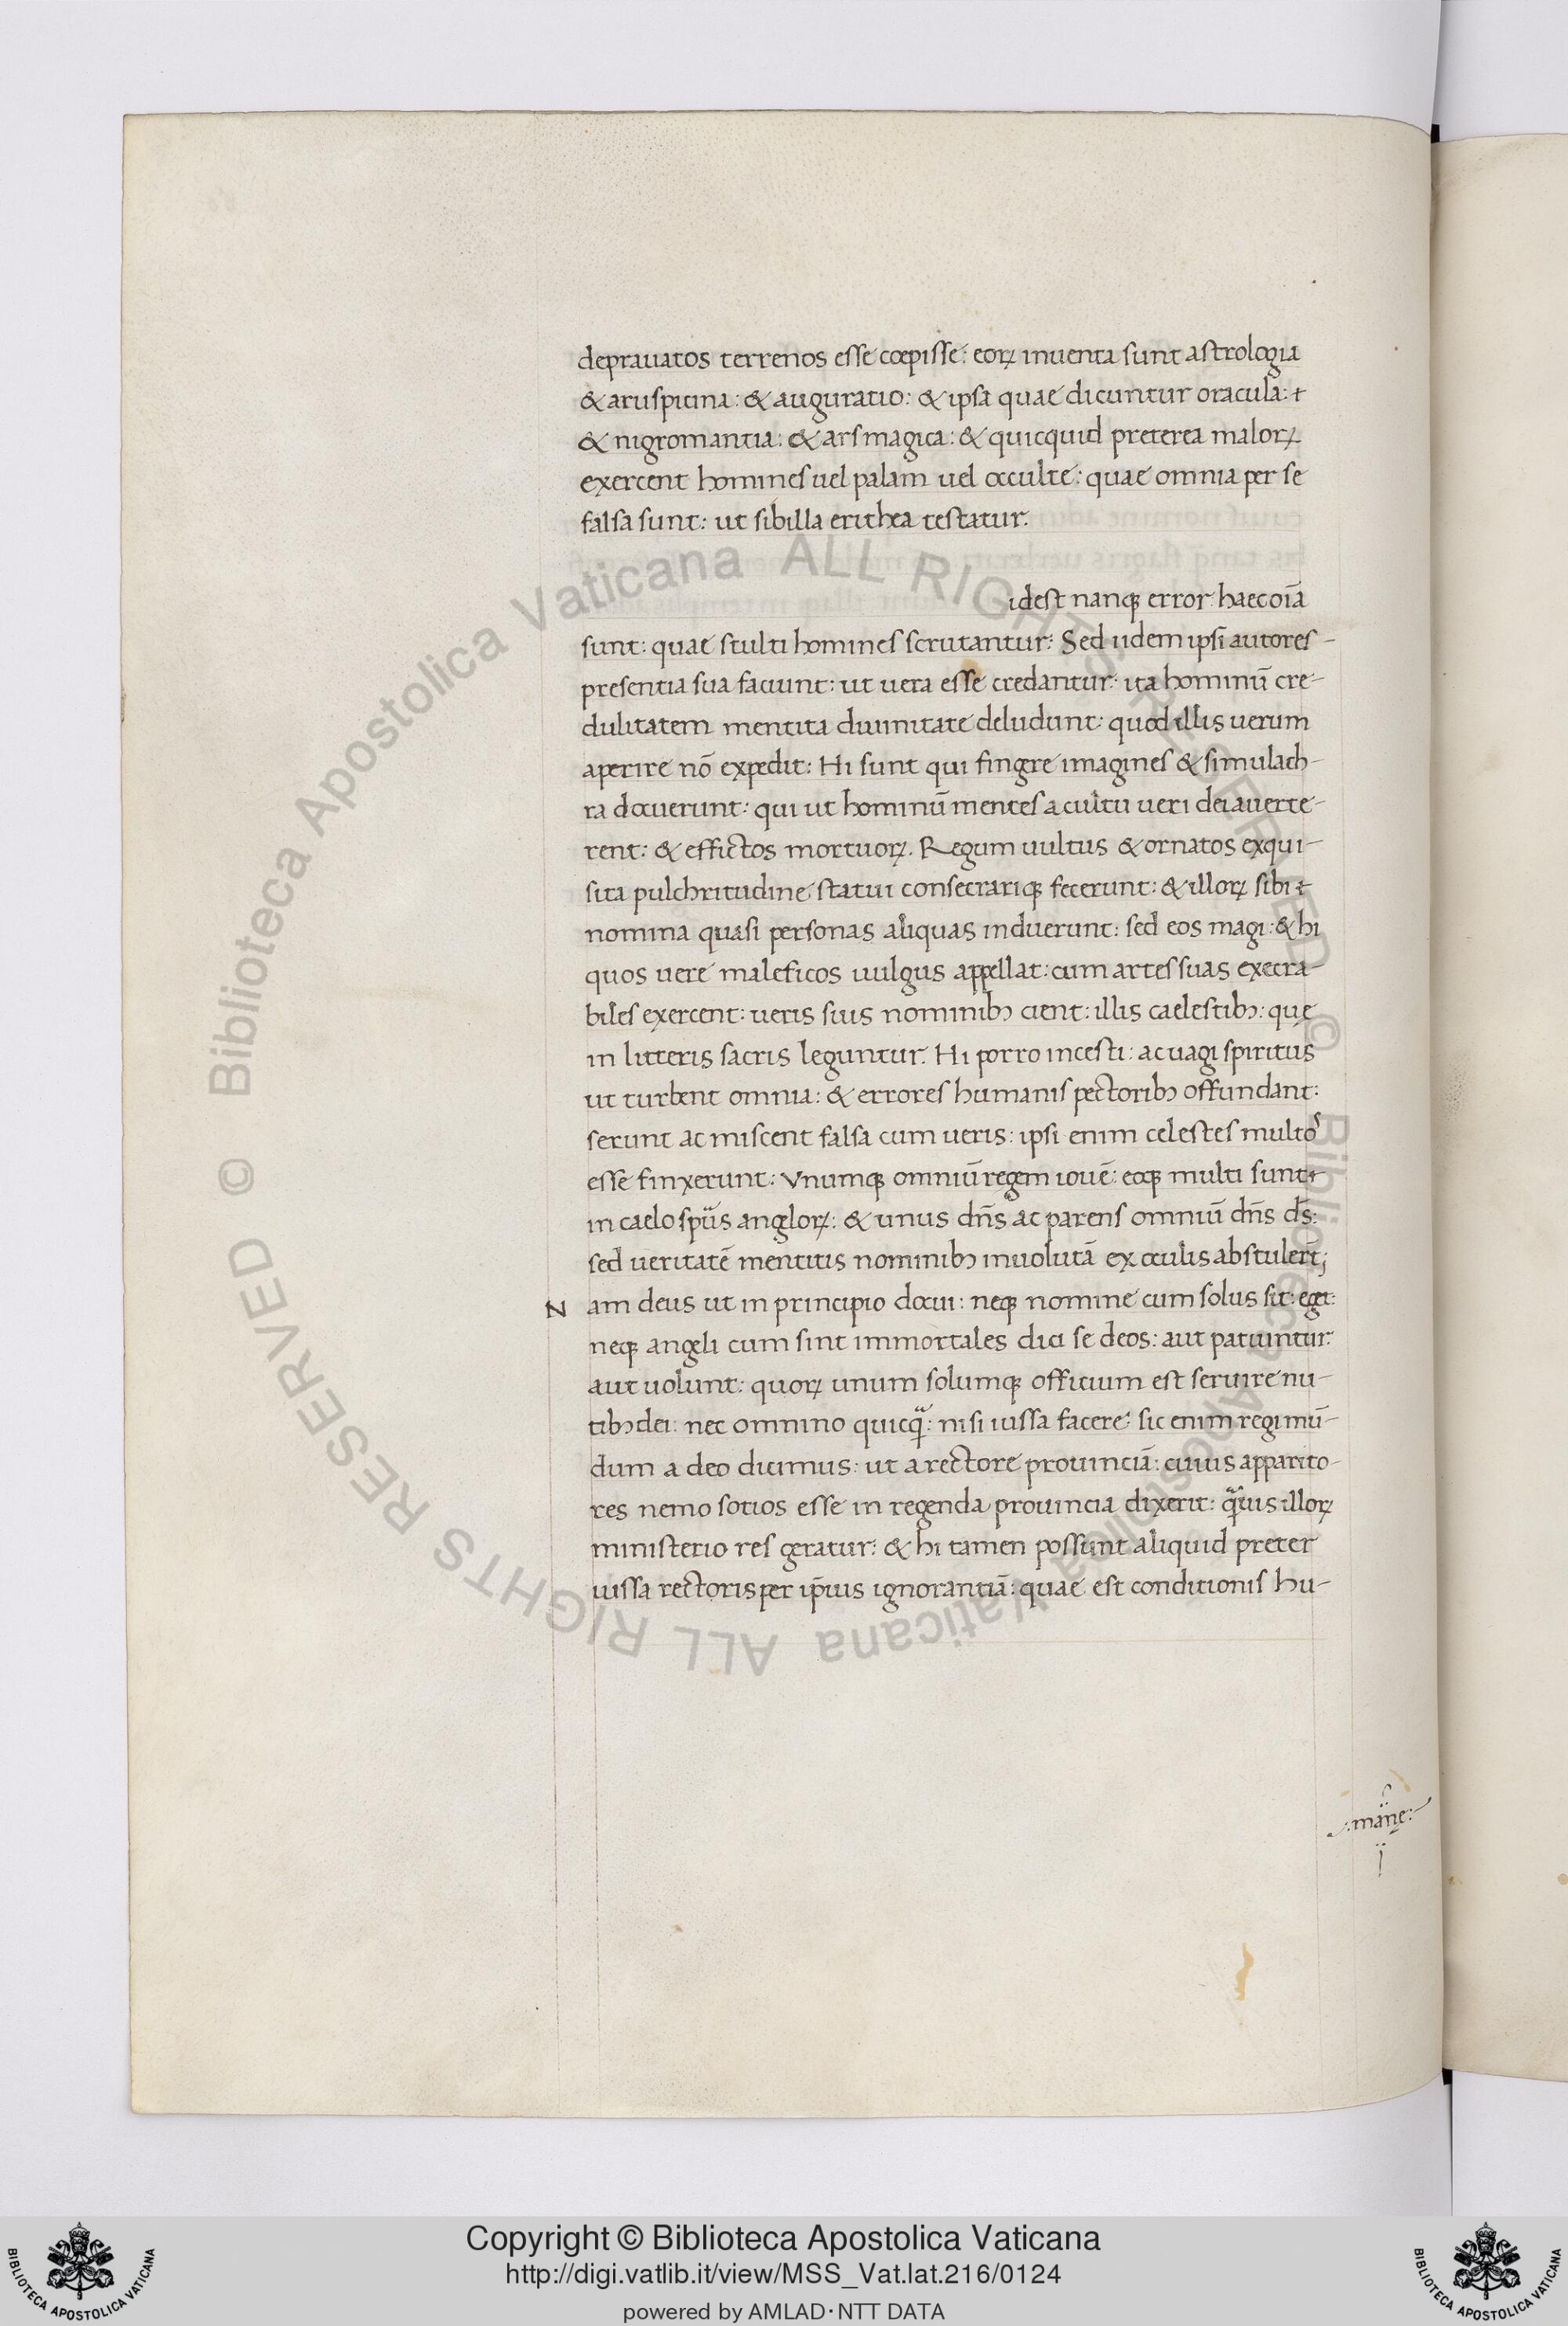 deprauatos terrenos esse cœpisse: eoꝝ inuenta sunt astrologia
& aruspicina: & auguratio: & ipsa quae dicuntur oracula: +
& nigromantia: & ars magica: & quicquid preterea maloꝝ
exercent homines uel palam uel occulte: quae omnia per se
falsa sunt: ut sibilla erithea testatur.
idest nanqꝫ error haec oīa
sunt: quae stulti homines scrutantur: Sed iidem ipsi autores
presentia sua faciunt: ut uera esse credantur: ita hominū cre-
dulitatem mentita diuinitate deludunt: quod illis uerum
aperire nō expedit: Hi sunt qui fingre imagines & simulach-
ra docuerunt: qui ut hominū mentes a cultu ueri dei auerte-
rent: & effictos mortuoꝝ. Regum uultus & ornatos exqui-
sita pulchritudine statui consecrariqꝫ fecerunt: & illoꝝ sibi +
nomina quasi personas aliquas induerunt: sed eos magi: & hi
quos uere maleficos uulgus appellat: cum artes suas execra-
biles exercent: ueris suis nominibꝫ cient: illis caelestibꝫ: quę
in litteris sacris leguntur. Hi porro incesti: ac uagi spiritus
ut turbent omnia: & errores humanis pectoribꝫ offundant:
serunt ac miscent falsa cum ueris: ipsi enim celestes multos
esse finxerunt: Vnumqꝫ omniū regem iouē: eoqꝫ multi sunt +
in caelo spūs angloꝝ: & unus dn̄s ac parens omniū dn̄s ds̄:
sed ueritatē mentitis nominibꝫ inuolutā ex oculis abstuler̄t;
N am deus ut in principio docui: neqꝫ nomine cum solus sit: eget:
neqꝫ angeli cum sint immortales dici se deos: aut patiuntur:
aut uolunt: quoꝝ unum solumqꝫ officium est seruire nu-
tibꝫ dei: nec omnino quicqᷓ: nisi iussa facere: sic enim regi mū-
dum a deo dicimus: ut a rectore prouinciā: cuius apparito-
res nemo sotios esse in regenda prouincia dixerit: qᷓuis illoꝝ
ministerio res geratur: & hi tamen possunt aliquid preter
iussa rectoris per ip̄ius ignorantiā: quae est conditionis hu-
:manę:
© Biblioteca Apostolica Vaticana ALL RIGHTS RESERVED © Biblioteca Apostolica Vaticana ALL RIGHTS RESERVED
Copyright © Biblioteca Apostolica Vaticana
http://digi.vatlib.it/view/MSS_Vat.lat.216/0124
powered by AMLAD·NTT DATA
BIBLIOTECA APOSTOLICA VATICANA
BIBLIOTECA APOSTOLICA VATICANA